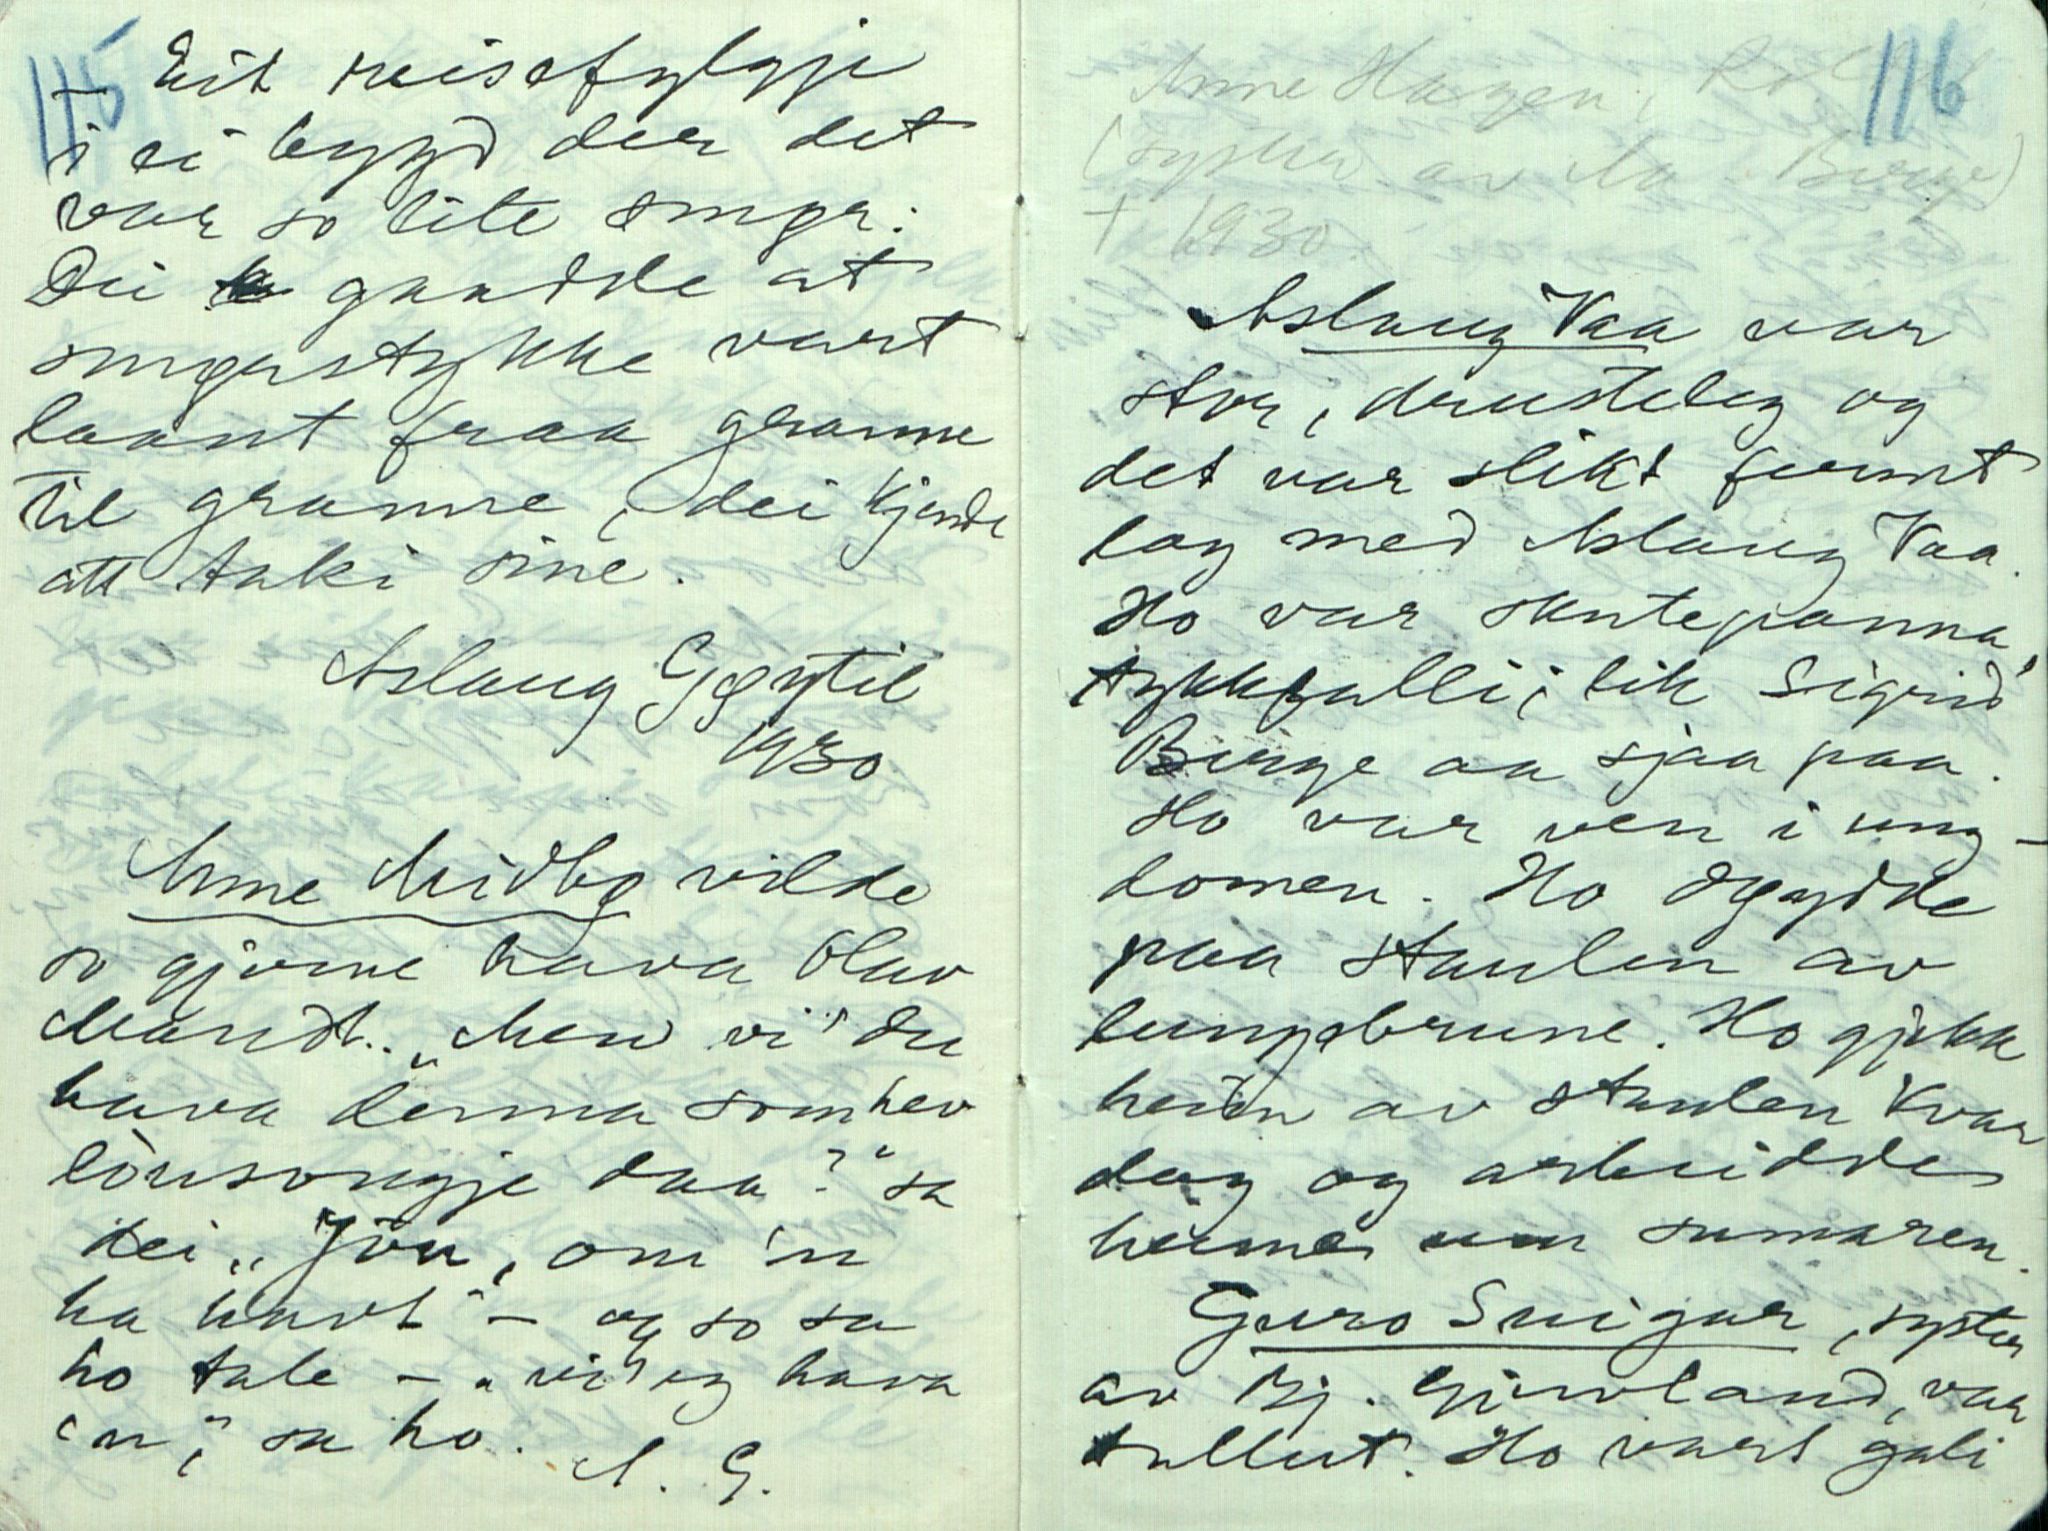 115
– Eit reisefylgje
i ei bygd der det
var so lite smør.
Dei gaadde at
smørstykke vart
laant fraa granne
til granne, dei kjende
att taki sine.
Aslaug Gjøytil
1930
Anne Midbø vilde
so gjerne hava Olav
Mandt. „Men vi' du
hava denna som hev
lòusongje daa?" sa
dei „Jòu, om 'n
ha havt" – og so sa
ho tale – „vi' eg hava
'n", sa ho.
A. G.
116
Anne Hagen,
(syster av Berge)
† 1930.
Aslaug Vaa var
stor, drusteleg og
det var slikt fermt
lag med Aslaug Vaa.
Ho var skutepanna,
tykkfalli; lik Sigrid
Berge aa sjaa paa.
Ho var ven i ung-
domen. Ho døydde
paa staulen av
lungebrune. Ho gjekk
heim av staulen kvar
dag og arbeidde
heime um sumaren.
Guro Snigar, syster
av Bj. Gjuvland, var
tullut. Ho vart gali